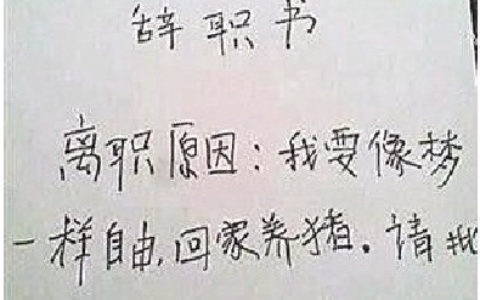 辞职书
离职原因:我要像梦
一样自由,回家养猪。请批